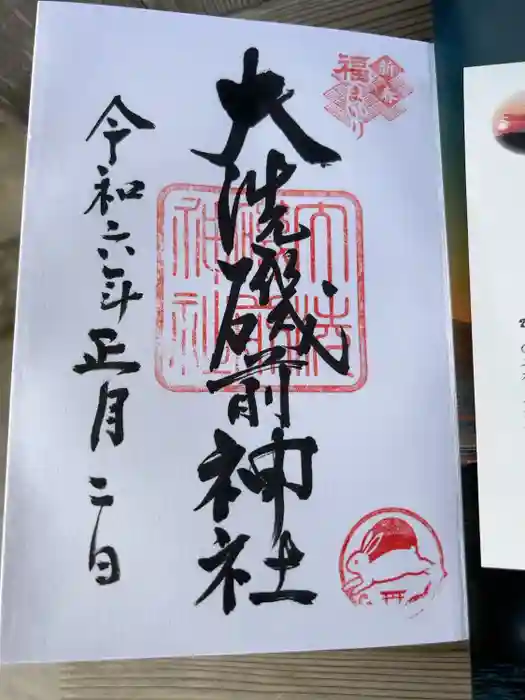 新春
福まいり
大洗磯前神社
大洗磯前神社
令和六年正月二日